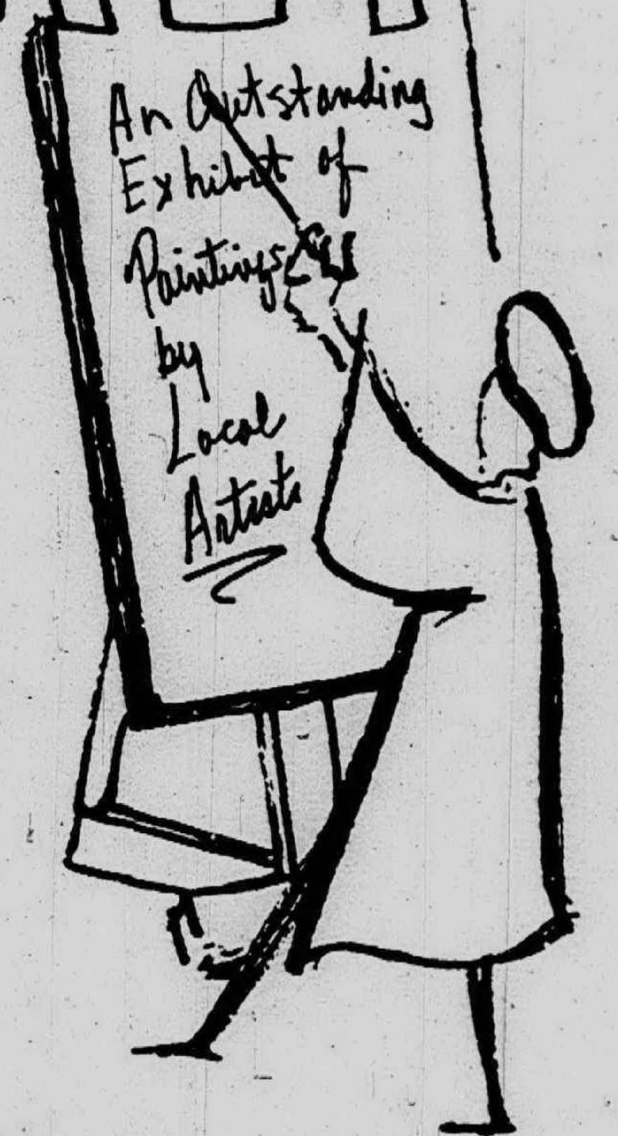 An Outstanding
Exhibit of
Paintings
by
Local
Artists